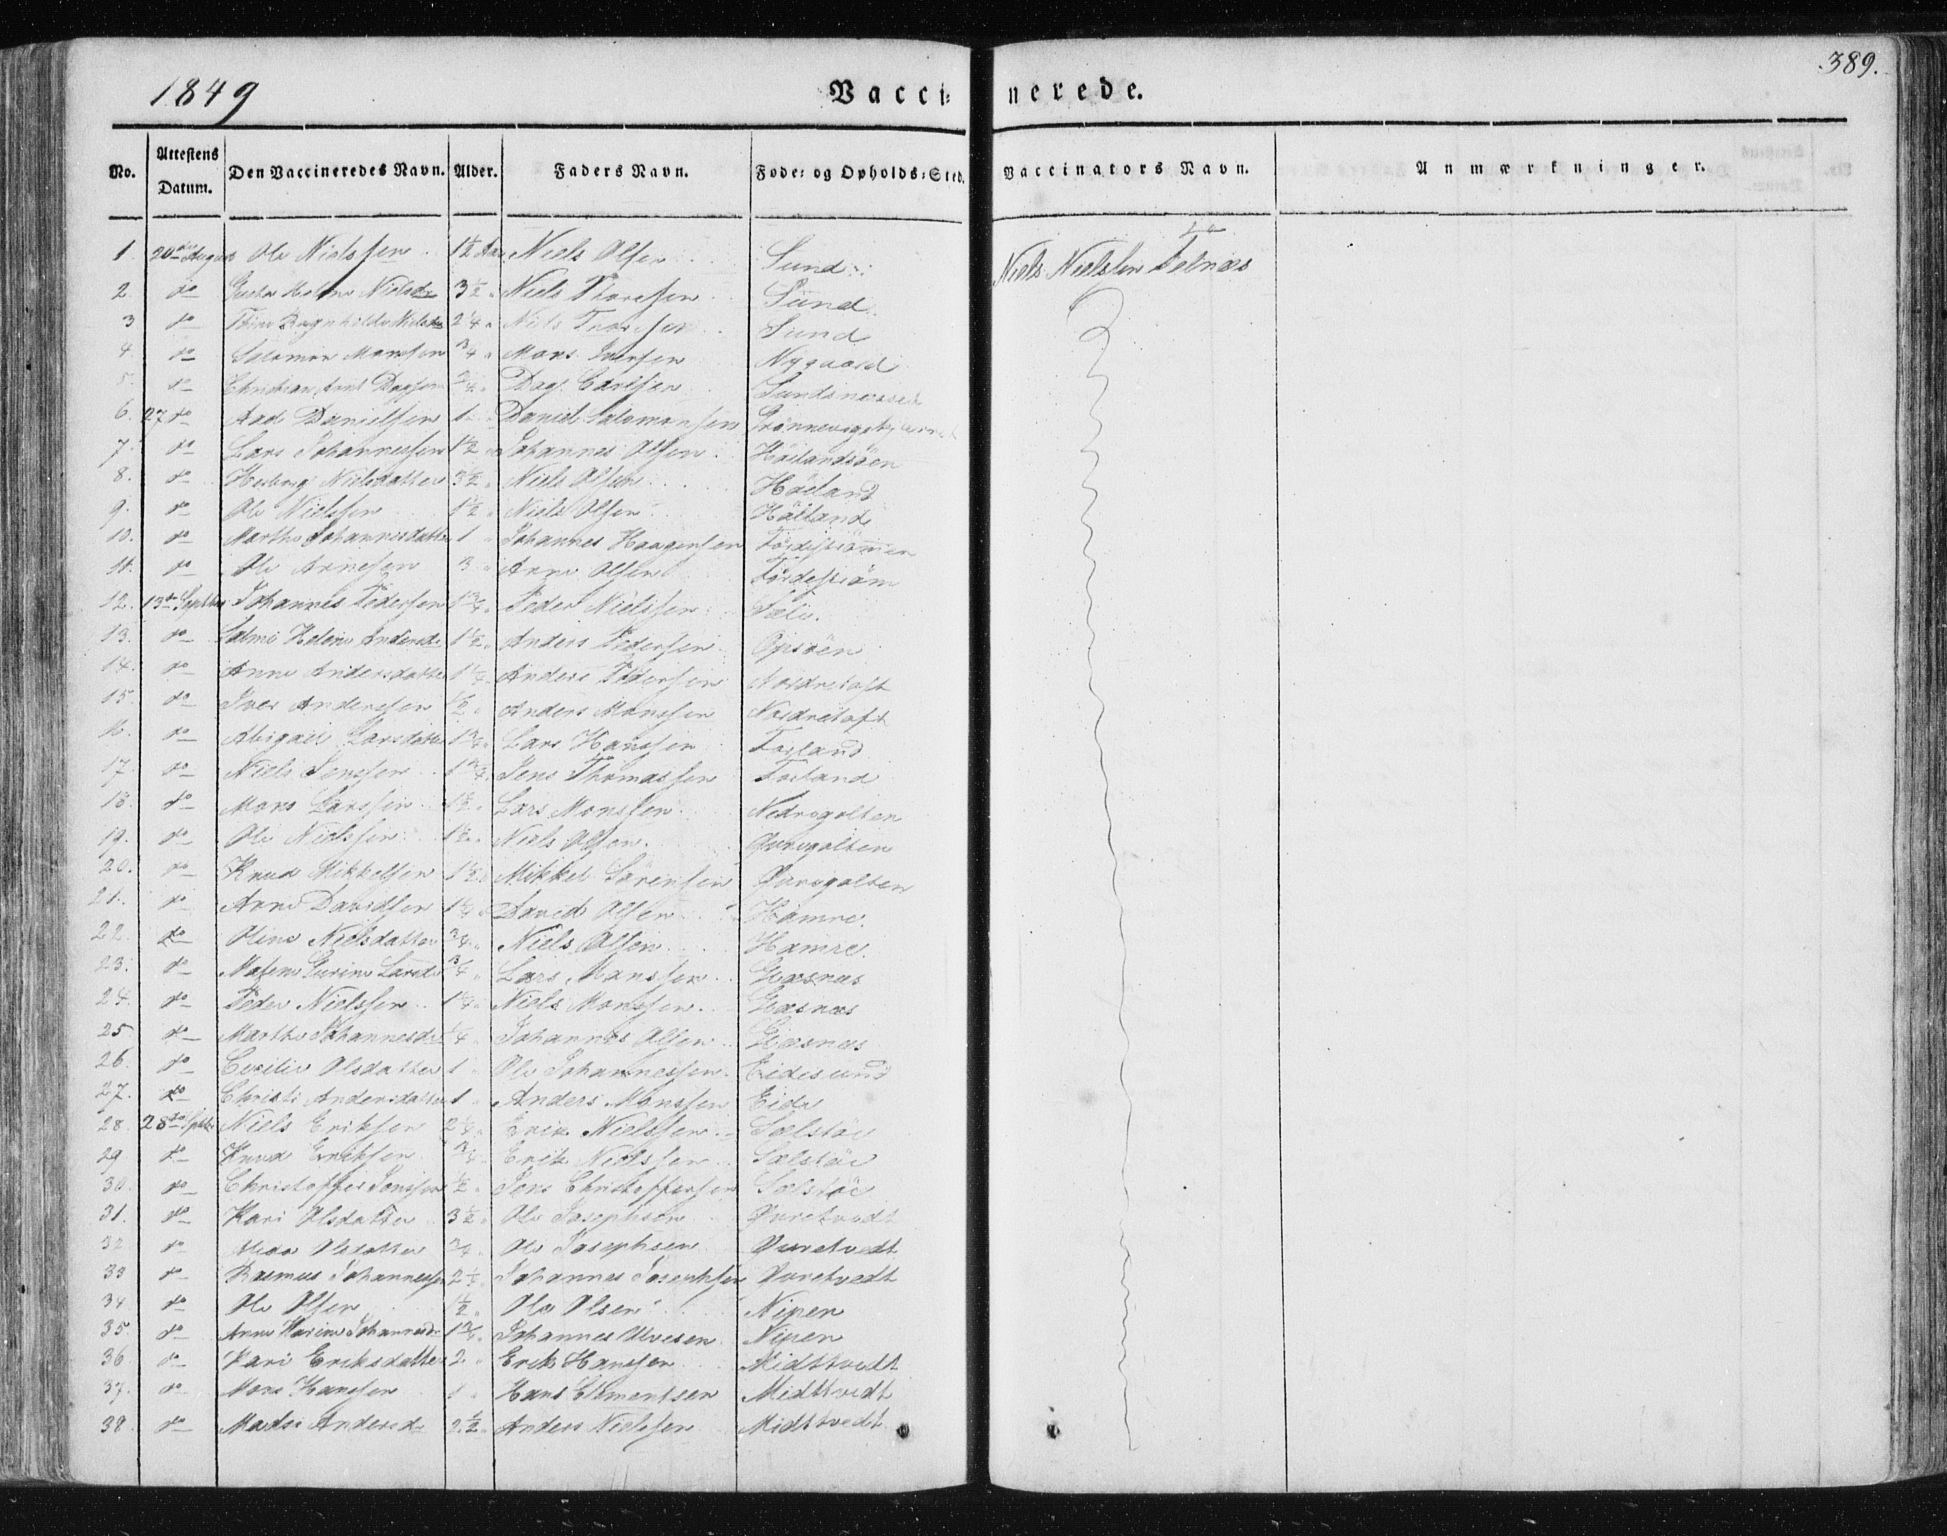 389.
1849 Vaccinerede.
No. Attestens Datum. Den Vaccineredes Navn. Alder. Faders Navn. Føde- og Opholds-Sted. Vaccinators Navn. Anmærkninger.
1. 20de August Ole Nielssen 1½ Aar Niels Olsen Sund Niels Nielssen Telnæs
2. do Helene Nielsdr 3½ Niels Thoresen Sund
3 do Ragnhilda Nielsdr 2¼ Niels Thoresen Sund
4 do Salamon Monssen ¾ Mons Iversen Nygaard
5. do Christian Dagssen Dag Larssen Sundsnesset
6. 27 do Aad Danielssen 1 Daniel Salamonssen
7. do Lars Johannessen 1½ Johannes Olsen Høilandsøen
8. do Herborg Nielsdatter 3½ Niels Olsen Høiland
9. do Ole Nielssen 1½ Niels Olsen Høiland
10. do Marthe Johannesdatter 1 Johannes Haagensen Førdestrømmen
11. do Ole Arnesen 3 Arne Olsen Førdestrøm
12. 13de Septbr Johannes Pedersen 1¾ Peder Nielssen Sælie.
13. do Helene Andersdr 1½ Anders Pedersen Opsøen
14. do Anne Andersdatter 1¼ Anders Pedersen Nordretoft
15. do Iver Anderssen ½ Anders Monssen Nordretoft
16. do Abigael Larsdatter 1¾ Lars Hanssen Forland
17. do Niels Jenssen 1¾ Jens Thomassen Forland
18. do Mons Larssen 1½ Lars Monssen Nedregolten
19. do Ole Nielssen 1½ Niels Olsen Øvregolten
20. do Knud Mikkelsen 1½ Mikkel Sørensen Øvregolten
21. do Arne Davidsen 1¼ David Olsen Hamre.
22. do Oline Nielsdatter ¾ Niels Olsen Hamre.
23. do Gurine Larsdr ¾ Lars Hanssen Giæsnæs
24. do Peder Nielssen 1¼ Niels Monssen Giæsnæs
25 do Marthe Johannesdr ¼ Johannes Olsen Giæsnæs
26. do Cecilie Olsdatter 1 Ole Johannessen Eidesund
27. do Christi Andersdatter 1 Anders Monssen Eide
28. 28de Septbr Niels Eriksen 2¼ Erik Nielssen Sælstøe
29 do Knud Eriksen ¾ Erik Nielssen Sælstøe
30. do Christoffer Jonssen ½ Jons Christoffersen Sælstøe
31. do Kari Olsdatter 3½ Ole Josephsen Øvretvedt
32 do Olsdatter ¾ Ole Josephsen Øvretvedt
33 do Rasmus Johannessen 2½ Johannes Josephsen Øvretvedt
34 do Ole Olsen 1½ Ole Olsen Nipen
35. do Anne Karine Johannesdr 1¾ Johannes Nipen
36 do Kari Eriksdatter 2 Erik Hanssen Midttvedt
37. do Mons Hanssen 1 Hans Clementsen Midttvedt
38 do Andersdr 2½ Anders Nielssen Midttvedt